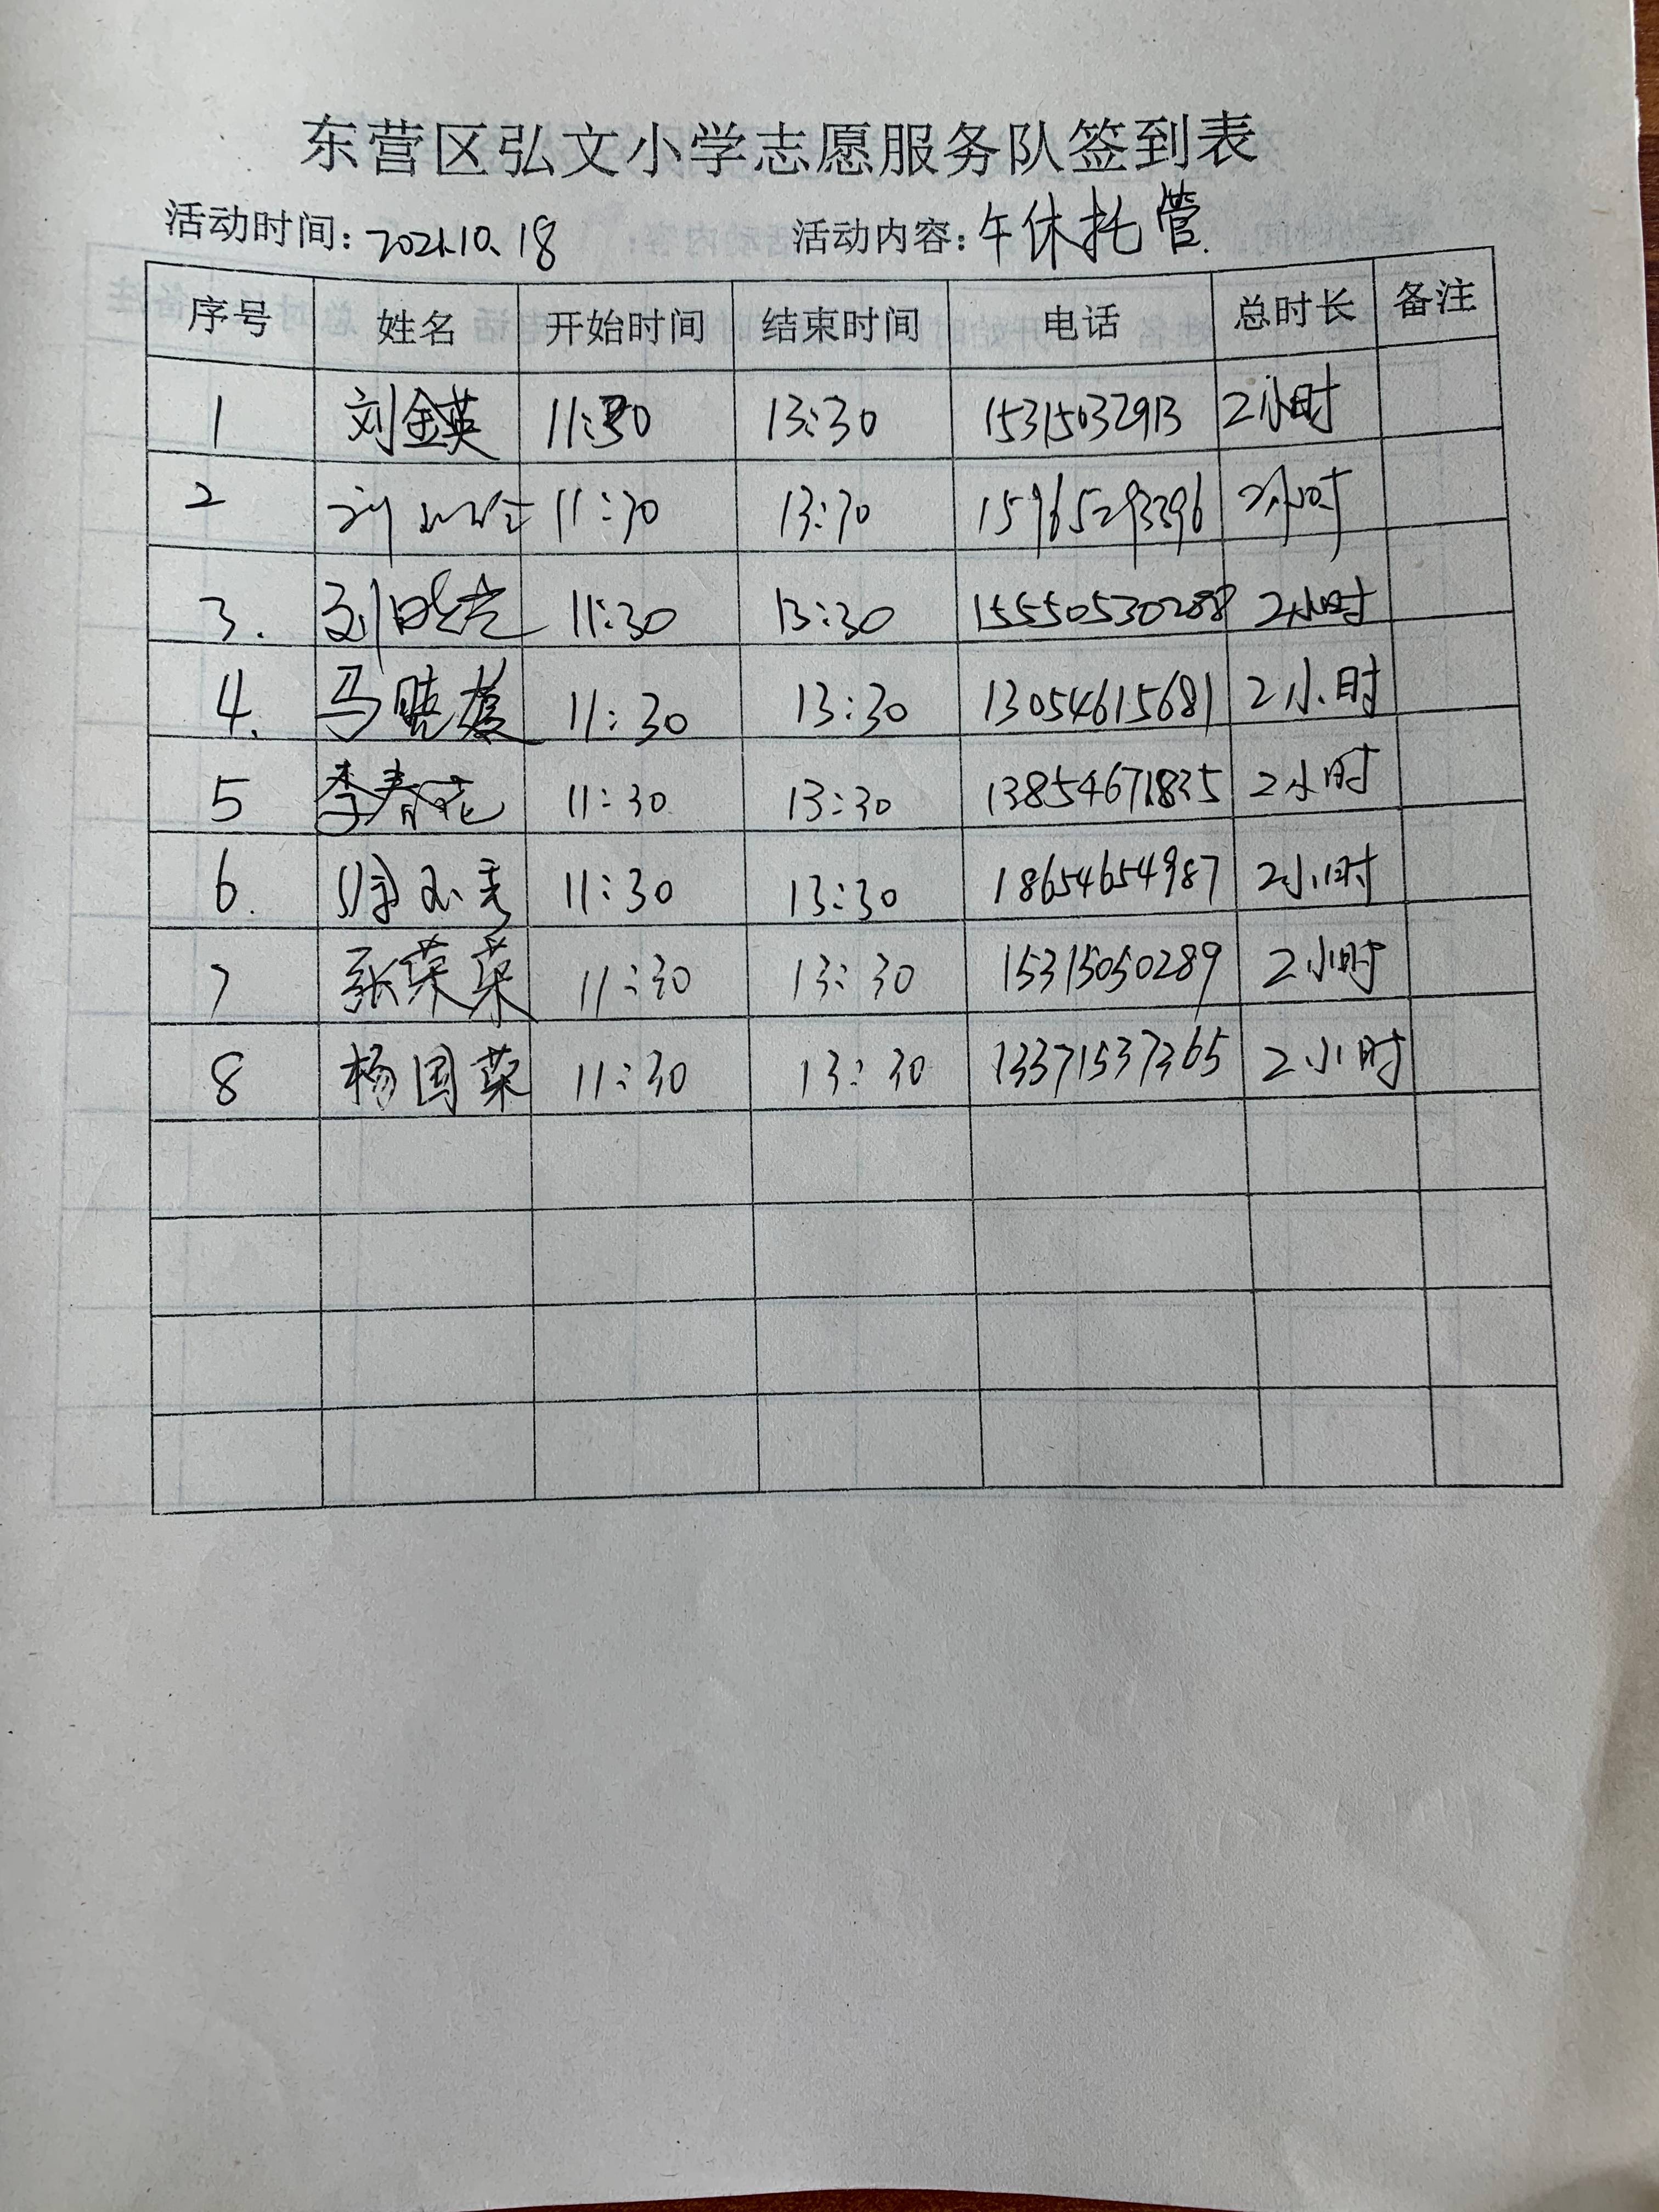 东营区弘文小学志愿服务队签到表
活动时间：2021.10.18 活动内容：午休托管
序号 姓名 开始时间 结束时间 电话 总时长 备注
1 刘金英 11:30 13:30 15315032913 2小时
2 11:30 13:30 15965293396 2小时
3. 刘晓光 11:30 13:30 15550530288 2小时
4. 马晓 11:30 13:30 13054615681 2小时
5 李春花 11:30 13:30 13854671835 2小时
6. 11:30 13:30 18654654987 2小时
7 张荣荣 11:30 13:30 15315050289 2小时
8 杨国荣 11:30 13:30 13371537365 2小时